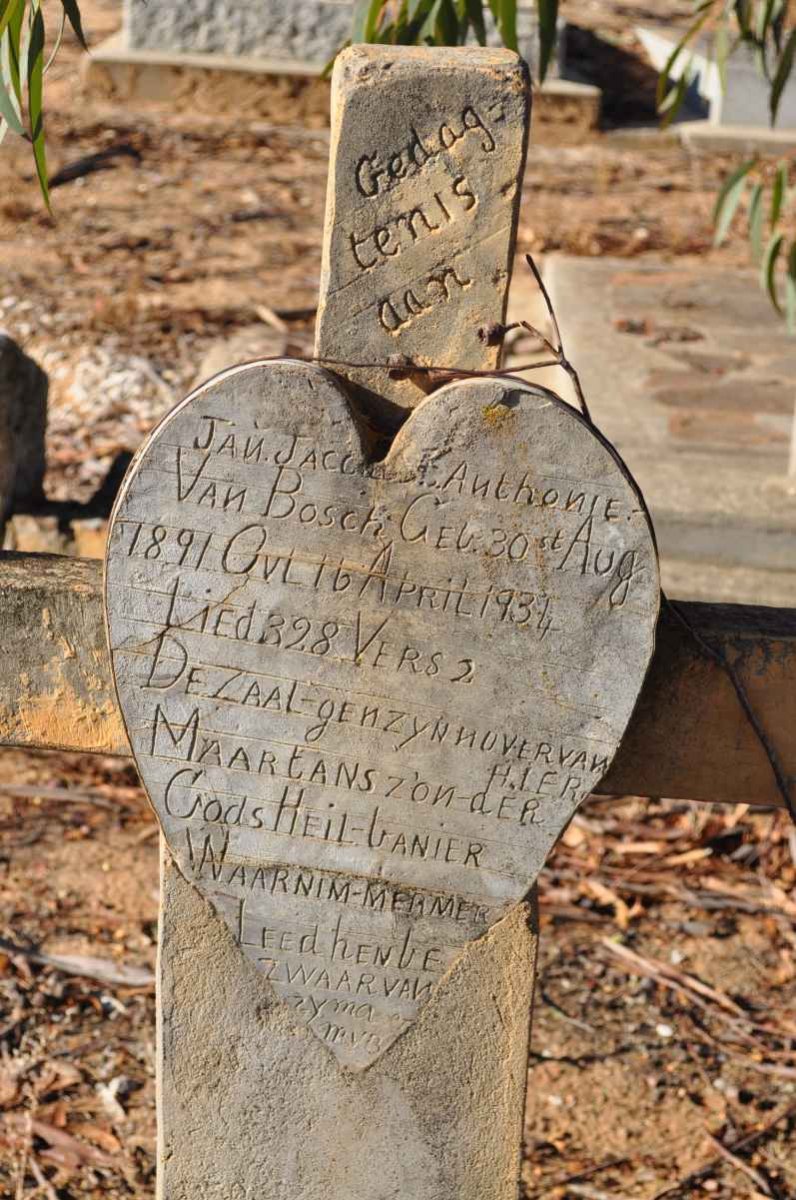 Gedag-
tenis
aan
JAN. JACO Anthonie.-
VAN BOSCH. GEB. 30st Aug
1891 OVL 16 APRIL 1934
LIED. 328 VERS 2
DE ZAAL-genzynnuvervan
H.IER
MAARTANS z'on-dER
Gods HEIL-banier
WAARNIM-MERMER
LEEdhenbe
ZWAARVAN
zyma